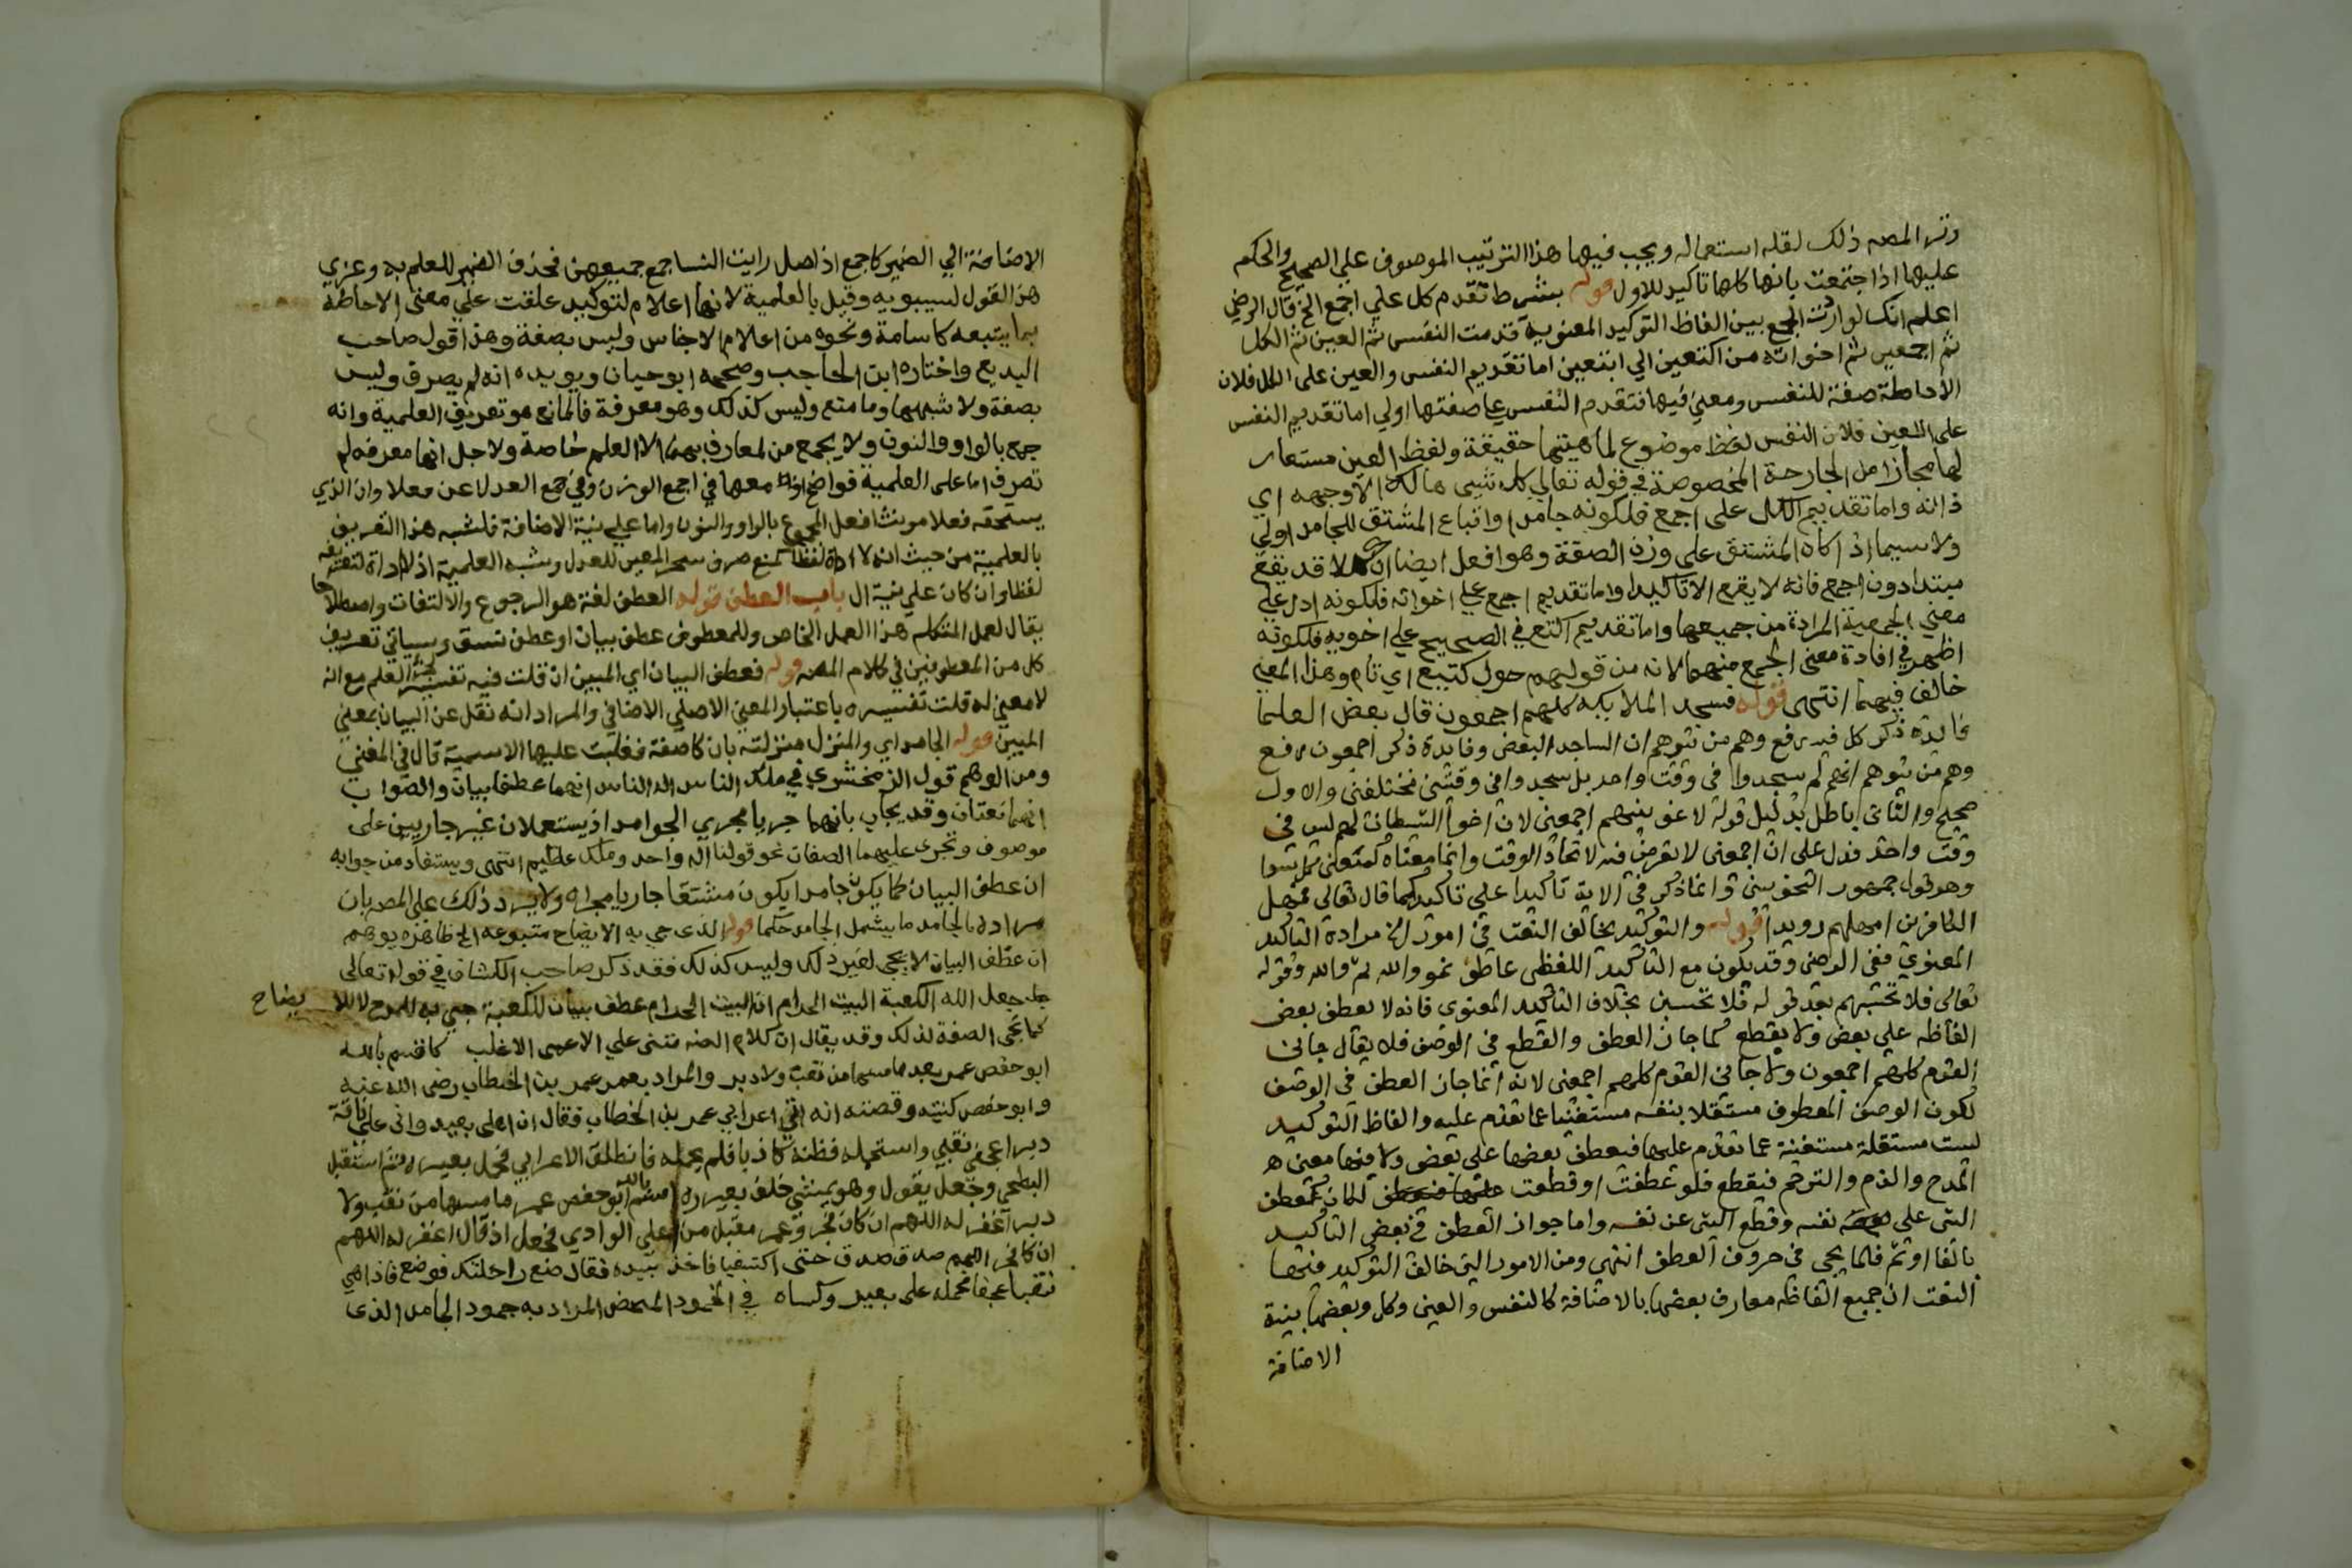 وترك المصه ذلك لقله استعماله ويجب فيها هذا الترتيب الموصوف علي الصحيح والحكم
عليها اذا اجتمعت بانها كلها تاكيد للاول قوله بشرط تقدم كل علي اجمع الخ قال الرضي
اعلم انك لو اردت الجمع بين الفاظ التوكيد المعنوية قدمت النفس ثم العين ثم الكل
ثم اجمعين ثم اخواته من اكتعين الي ابتعين اما تقديم النفس والعين على الكل فلان
الاحاطة صفة للنفس ومعني فيها فتقدم النفس علي صفتها اولي اما تقديم النفس
على العين فلان النفس لفظ موضوع لماهيتها حقيقة ولفظ العين مستعار
لها مجازا من الجارحة المخصوصة في قوله تعالي كل شيى هالك الا وجهه اي
ذاته واما تقديم الكل على اجمع فلكونه جامدا واتباع المشتق للجامد اولي
ولاسيما اذا كان المشتق على وزن الصفة وهو افعل ايضا ان كلا قد يقع
مبتدا دون اجمع فانه لا يقع الا تاكيدا واما تقديم اجمع علي اخواته فلكونه ادل علي
معني الجمعية المرادة من جميعها واما تقديم اكتع في الصحيح علي اخويه فلكونه
اظهر في افادة معنى الجمع منهما لانه من قولهم حول كتيع اي تام وهذا المعني
خالف فيهما انتهى قوله فسجد الملايكه كلهم اجمعون قال بعض العلما
فايدة ذكر كل فيه رفع وهم من يتوهم ان الساجد البعض وفايدة ذكر اجمعون رفع
وهم من يتوهم انهم لم يسجدوا في وقت واحد بل سجدوا في وقتين مختلفين والاول
صحيح والثاني باطل بدليل قوله لاغوينهم اجمعين لان اغوا الشيطان لهم ليس في
وقت واحد فدل على ان اجمعين لا تعرض فيه لاتحاد الوقت وانما معناه كمعني كل سوا
وهو قول جمهور النحويين وانما ذكر في الاية تاكيدا على تاكيد كما قال تعالى فمهل
الكافرين امهلهم رويدا قوله والتوكيد يخالف النعت في امور الخ مراده التاكيد
المعنوي ففي الرضي وقد يكون مع التاكيد اللفظي عاطف نحو والله ثم والله وقوله
تعالى فلا تحسبنهم بعد قوله فلا تحسبن بخلاف التاكيد المعنوى فانه لا يعطف بعض
الفاظه علي بعض ولا يقطع كما جاز العطف والقطع في الوصف فلا يقال جاني
القوم كلهم اجمعون ولا جاني القوم كلهم اجمعين لانه انما جاز العطف في الوصف
لكون الوصف المعطوف مستقلا بنفسه مستغنيا عما تقدم عليه والفاظ التوكيد
ليست مستقلة مستغنية عما تقدم عليها فيعطف بعضها على بعض ولا فيها معنى
المدح والذم والترحم فيقطع فلو عطفت او قطعت لكان كعطف
الشي على نفسه وقطع الشي عن نفسه واما جواز العطف في بعض التاكيد
بالفا او ثم فلما يجي في حروف العطف انتهى ومن الامور التي خالف التوكيد فيها
النعت ان جميع الفاظه معارف بعضها بالاضافة كالنفس والعين وكل وبعضها بنية
الاضافة
الاضافة الي الضمير كاجمع اذ اصل رايت النسا جمع جميعهن فحذف الضمير للعلم به وعزي
هذا القول لسيبويه وقيل بالعلمية لانها اعلام لتوكيد علقت علي معنى الاحاطة
بما يتبعه كاسامة ونحوه من اعلام الاجناس وليس بصفة وهذا قول صاحب
البديع واختاره ابن الحاجب وصححه ابو حيان ويويده انه لم يصرف وليس
بصفة ولا شبهها وما منع وليس كذلك وهو معرفة فالمانع هو تعريف العلمية وانه
جمع بالواو والنون ولا يجمع من المعارف بهما الا العلم خاصة ولاجل انها معرفه لم
تصرف اما على العلمية فواضح معها في اجمع الوزن وفي جمع العدل عن فعلا وان الذي
يستحقه فعلا مونث افعل المجموع بالواو والنون واما علي نية الاضافة فلشبه هذا التعريف
بالعلمية من حيث انه لا اداة لفظا كمنع صرف سحر المعين للعدل وشبه العلمية اذ لا اداة لتعريفه
لفظا وان كان علي نية ال باب العطف قوله العطف لغة هو الرجوع والالتفات واصطلاحا
يقال لعمل المتكلم هذا العمل الخاص وللمعطوف عطف بيان او عطف نسق وسياتي تعريف
كل من المعطوفين في كلام المصه قوله فعطف البيان اي المبين ان قلت فيه تفسير العلم مع انه
لا معني له قلت تفسيره باعتبار المعني الاصلي الاضافي والمراد انه نقل عن البيان بمعني
المبين قوله الجامد اي والمنزل منزلته بان كان صفة فغلبت عليها الاسمية قال في المغني
ومن الوهم قول الزمخشري في ملك الناس اله الناس انهما عطفا بيان والصواب
انهما نعتان وقد يجاب بانهما جريا مجري الجوامد اذ يستعملان غير جاريين على
موصوف وتجرى عليهما الصفات نحو قولنا اله واحد وملك عظيم انتهى ويستفاد من جوابه
ان عطف البيان كما يكون جامدا يكون مشتقا جاريا مجراه ولا يرد ذلك على المصه بان
مراده بالجامد ما يشمل الجامد حكما قوله الذي جي به الايضاح متبوعه الخ ظاهره يوهم
ان عطف البيان لا يجي لغير ذلك وليس كذلك فقد ذكر صاحب الكشاف في قوله تعالى
جعل الله الكعبة البيت الحرام ان البيت الحرام عطف بيان للكعبة جي به للمدح لا للايضاح
كما تجى الصفة لذلك وقد يقال ان كلام المصه مبني علي الاعم الاغلب كاقسم بالله
ابو حفص عمر بعد ما مسها من نقب ولا دبر والمراد بعمر عمر بن الخطاب رضى الله عنه
وابو حفص كنيته وقصته انه اتي اعرابي عمر بن الخطاب فقال ان اهلى بعيد واني على ناقة
دبرا عجفي نقبي واستحمله فظنه كاذبا فلم يحمله فانطلق الاعرابي فحمل بعيره ثم استقبل
البطحي وجعل يقول وهو يمشي خلف بعيره اقسم بالله ابو حفص عمر ما مسها من نقب ولا
دبر اغفر له اللهم ان كان فجر وعمر مقبل من اعلي الوادي فجعل اذ قال اغفر له اللهم
ان كان فجر اللهم صدق صدق حتى التقيا فاخذ بيده فقال ضع راحلتك فوضع فاذا هي
نقبا عجفا فحمله على بعير وكساه في المحض المراد به جمود الجامد الذى